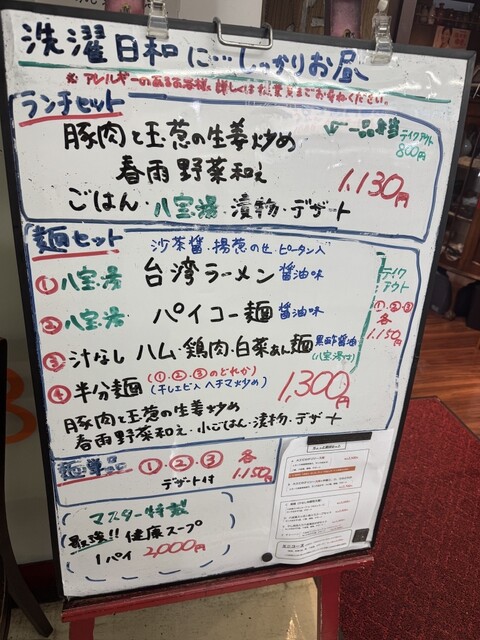 洗濯日和に…しっかりお昼へ
※アレルギーのあるお客様、詳しくは従業員までお尋ねください。
ランチセット
豚肉と玉葱の生姜炒め
春雨野菜和え
ごはん・八宝湯・漬物・デザート
一品弁当
テイクアウト
800円
1,130円
麺セット
沙茶醤・揚葱のせ・ピータン入
①八宝湯 台湾ラーメン 醤油味
②八宝湯 パイコー麺 醤油味
③汁なし ハム・鶏肉・白菜あん麺 黒酢醤油
(八宝湯付)
④半分麺 (①・②・③のどれか)
(干しエビ入ヘチマ炒め)
1,300円
豚肉と玉葱の生姜炒め
春雨野菜和え・小ごはん・漬物・デザート
テイク
アウト
①・②・③
各
1,150円
麺単品 ①・②・③ 各
デザート付 1,150円
マスター特製
最強!!健康スープ
1パイ 2,000円